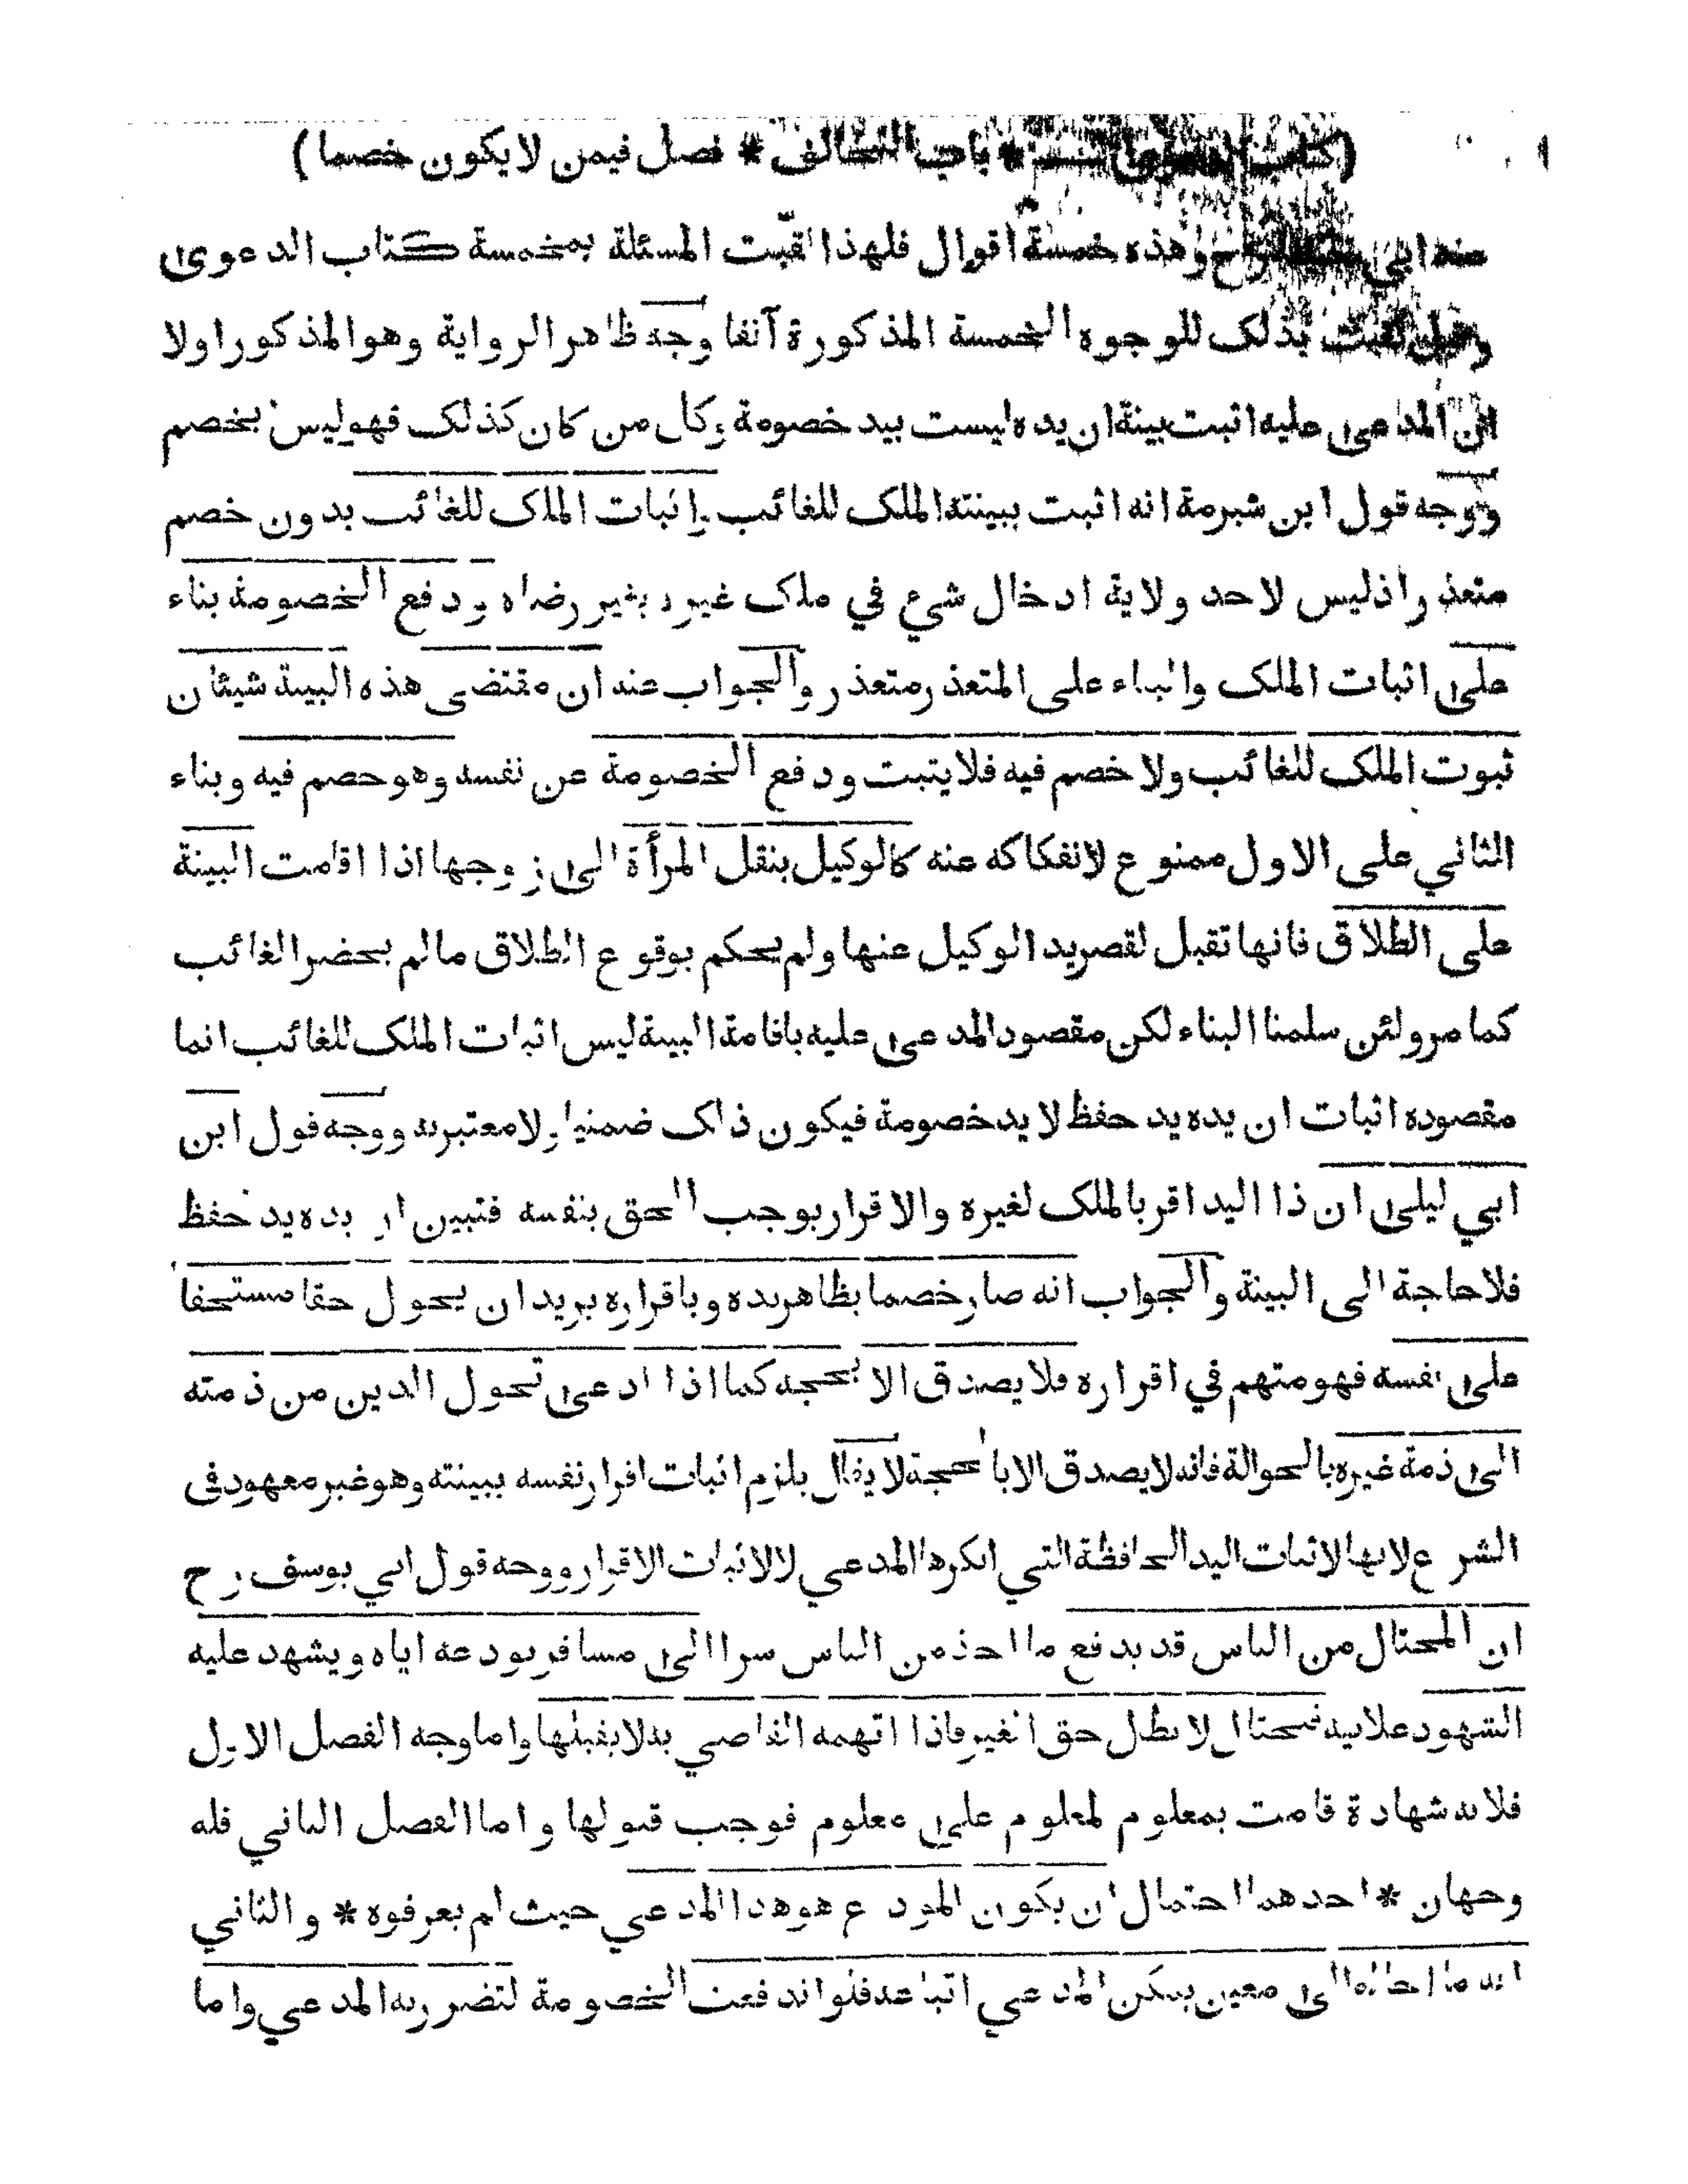 (كتاب الدعوى * باب التحالف * فصل فيمن لا يكون خصما)
عند ابي وهذه خمسة اقوال فلهذا لقبت المسئلة بمخمسة كتاب الدعوى
وقيل لقبت بذلك للوجوه الخمسة المذكورة آنفا وجه ظاهر الرواية وهو المذكور اولا
ان المدعى عليه اثبت ببينة ان يده ليست بيد خصومة وكل من كان كذلك فهو ليس بخصم
ووجه قول ابن شبرمة انه اثبت ببينته الملك للغائب واثبات الملك للغائب بدون خصم
متعذر اذ ليس لاحد ولاية ادخال شيء في ملك غيره بغير رضاه ودفع الخصومة بناء
على اثبات الملك والبناء على المتعذر متعذر والجواب عنه ان مقتضى هذه البينة شيئان
ثبوت الملك للغائب ولا خصم فيه فلا يثبت ودفع الخصومة عن نفسه وهو خصم فيه وبناء
الثاني على الاول ممنوع لانفكاكه عنه كالوكيل بنقل المرأة الى زوجها اذا اقامت البينة
على الطلاق فانها تقبل لقصر يد الوكيل عنها ولم يحكم بوقوع الطلاق مالم يحضر الغائب
كما مر ولئن سلمنا البناء لكن مقصود المدعى عليه باقامة البينة ليس اثبات الملك للغائب انما
مقصوده اثبات ان يده يد حفظ لا يد خصومة فيكون ذلك ضمنيا ولا معتبر به ووجه قول ابن
ابي ليلى ان ذا اليد اقر بالملك لغيره والاقرار يوجب الحق بنفسه فتبين ان يده يد حفظ
فلا حاجة الى البينة والجواب انه صار خصما بظاهر يده وباقراره يريد ان يحول حقا مستحقا
على نفسه فهو متهم في اقراره فلا يصدق الا بحجة كما اذا ادعى تحول الدين من ذمته
الى ذمة غيره بالحوالة فانه لا يصدق الا بالحجة لا يقال يلزم اثبات اقرار نفسه ببينته وهو غير معهود في
الشرع لانها لاثبات اليد الحافظة التي انكرها المدعي لا لاثبات الاقرار ووجه قول ابي يوسف رح
ان المحتال من الناس قد يدفع ما اخذ من الناس سرا الى مسافر يودعه اياه ويشهد عليه
الشهود علانية فيحتال لابطال حق الغير فاذا اتهمه القاضي به لا يقبلها واما وجه الفصل الاول
فلانه شهادة قامت بمعلوم لمعلوم على معلوم فوجب قبولها واما الفصل الثاني فله
وجهان * احدهما احتمال ان يكون المودع هو هذا المدعي حيث لم يعرفوه * والثاني
انه ما احاله الى معين يمكن المدعي اتباعه فلو اندفعت الخصومة لتضرر به المدعي واما